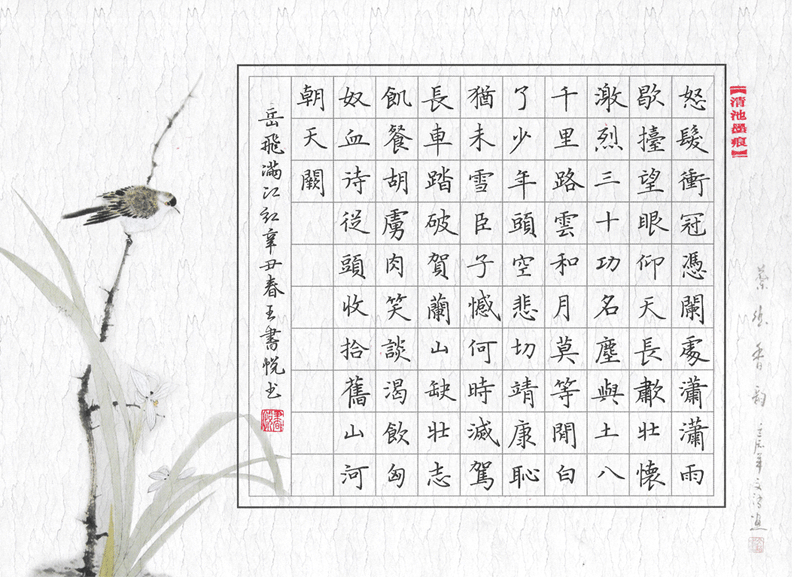 【清池墨痕】
怒髮衝冠憑闌處瀟瀟雨
歇擡望眼仰天長歗壯懷
激烈三十功名塵與土八
千里路雲和月莫等閒白
了少年頭空悲切靖康恥
猶未雪臣子憾何時滅駕
長車踏破賀蘭山缺壯志
飢餐胡虜肉笑談渴飲匈
奴血待從頭收拾舊山河
朝天闕
岳飛滿江紅辛丑春王書悅书